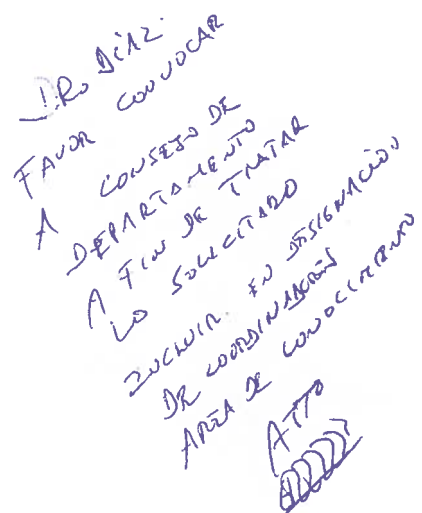 DRO DÍAZ.
FAVOR CONVOCAR
A CONSEJO DE
DEPARTAMENTO
A FIN DE TRATAR
LO SOLICITADO
INCLUIR EN DESIGNACIÓN
DE COORDINADORES
AREA DE CONOCIMIENTO
ATTO